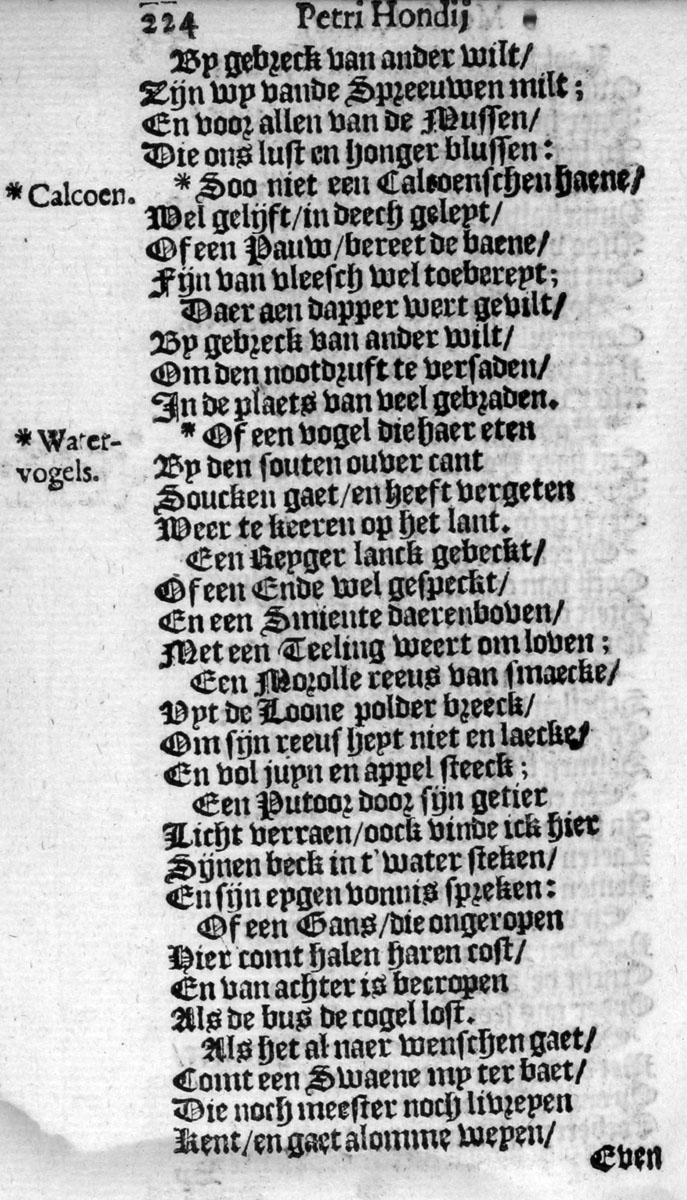 224 Petri Hondij
By gebreck van ander wilt/
Zijn wy vande Spreeuwen milt;
En voor allen van de Mussen/
Die ons lust en honger blussen:
* Calcoen. * Soo niet een Calcoenschen haene/
Wel gelijft/in deech geleyt/
Of een Pauw/bereet de baene/
Fijn van vleesch wel toebereyt;
Daer aen dapper wert gevilt/
By gebreck van ander wilt/
Om den nootdruft te versaden/
In de plaets van veel gebraden.
* Water-vogels. * Of een vogel die haer eten
By den souten ouver cant
Soucken gaet/en heeft vergeten
Weer te keeren op het lant.
Een Reyger lanck gebeckt/
Of een Ende wel gespeckt/
En een Smiente daerenboven/
Met een Teeling weert om loven;
Een Morolle reeus van smaecke/
Vyt de Loone polder breeck/
Om sijn reeus heyt niet en laecke/
En vol juyn en appel steeck;
Een Putoor door sijn getier
Licht verraen/oock vinde ick hier
Sijnen beck in t'water steken/
En sijn eygen vonnis spreken:
Of een Gans/die ongeropen
Hier comt halen haren cost/
En van achter is becropen
Als de bus de cogel lost.
Als het al naer wenschen gaet/
Comt een Swaene my ter baet/
Die noch meester noch livreyen
Kent/en gaet alomme weyen/
Even